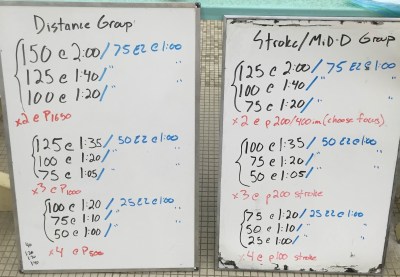 Distance Group
150 @ 2:00/ 75 EZ @ 1:00
125 @ 1:40/ " "
100 @ 1:20/ " "
x2 @ P1650
125 @ 1:35/ 50 EZ @ 1:00
100 @ 1:20/ " "
75 @ 1:05/ " "
x3 @ P1000
100 @ 1:20/ 25 EZ @ 1:00
75 @ 1:10/ " "
50 @ 1:00/ " "
x4 @ P500
Stroke/M.D.D Group
125 @ 2:00/ 75 EZ @ 1:00
100 @ 1:40/ " "
75 @ 1:20/ " "
x2 @ p200/400im (choose focus)
100 @ 1:35/ 50 EZ @ 1:00
75 @ 1:20/ " "
50 @ 1:05/ " "
x3 @ p200 stroke
75 @ 1:20/ 25 EZ @ 1:00
50 @ 1:10/ " "
25 @ 1:00/ " "
x4 @ p100 stroke